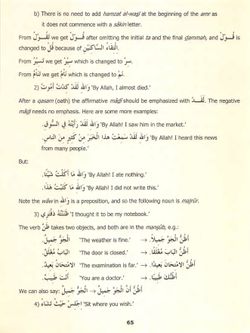 b) There is no need to add hamzat al-waṣl at the beginning of the amr as
it does not commence with a sākin letter.
From تَقُوْلُ we get قُوْلْ after omitting the initial ta and the final ḍammah, and قُوْلْ is
changed to قُلْ because of اِلْتِقَاءُ السَّاكِنَيْنِ.
From تَسِيْرُ we get سِيْرْ which is changed to سِرْ.
From تَنَامُ we get نَامْ which is changed to نَمْ.
2) وَاللهِ لَقَدْ كِدْتُ أَمُوْتُ 'By Allah, I almost died.'
After a qasam (oath) the affirmative māḍī should be emphasized with لَقَدْ. The negative
māḍī needs no emphasis. Here are some more examples:
وَاللهِ لَقَدْ رَأَيْتُهُ فِي السُّوْقِ. 'By Allah! I saw him in the market.'
وَاللهِ لَقَدْ سَمِعْتُ هذا الْخَبَرَ مِنْ كَثِيْرٍ مِنَ النَّاسِ. 'By Allah! I heard this news
from many people.'
But:
وَاللهِ مَا أَكَلْتُ شَيْئًا. 'By Allah! I ate nothing.'
وَاللهِ مَا كَتَبْتُ هَذَا. 'By Allah! I did not write this.'
Note the wāw in وَاللهِ is a preposition, and so the following noun is majrūr.
3) ظَنَنْتُهُ دَفْتَرِي 'I thought it to be my notebook.'
The verb ظَنَّ takes two objects, and both are in the manṣūb, e.g.:
الْجَوُّ جَمِيْلٌ. 'The weather is fine.' → أَظُنُّ الْجَوَّ جَمِيْلاً.
الْبَابُ مُغْلَقٌ. 'The door is closed.' → أَظُنُّ الْبَابَ مُغْلَقًا.
الاِمْتِحَانُ بَعِيْدٌ. 'The examination is far.' → أَظُنُّ الاِمْتِحَانَ بَعِيْدًا.
أَنْتَ طَبِيْبٌ. 'You are a doctor.' → أَظُنُّكَ طَبِيْبًا.
We can also say: الْجَوُّ جَمِيْلٌ → أَظُنُّ أَنَّ الْجَوَّ جَمِيْلٌ.
4) اِجْلِسْ حَيْثُ تَشَاءُ 'Sit where you wish.'
65